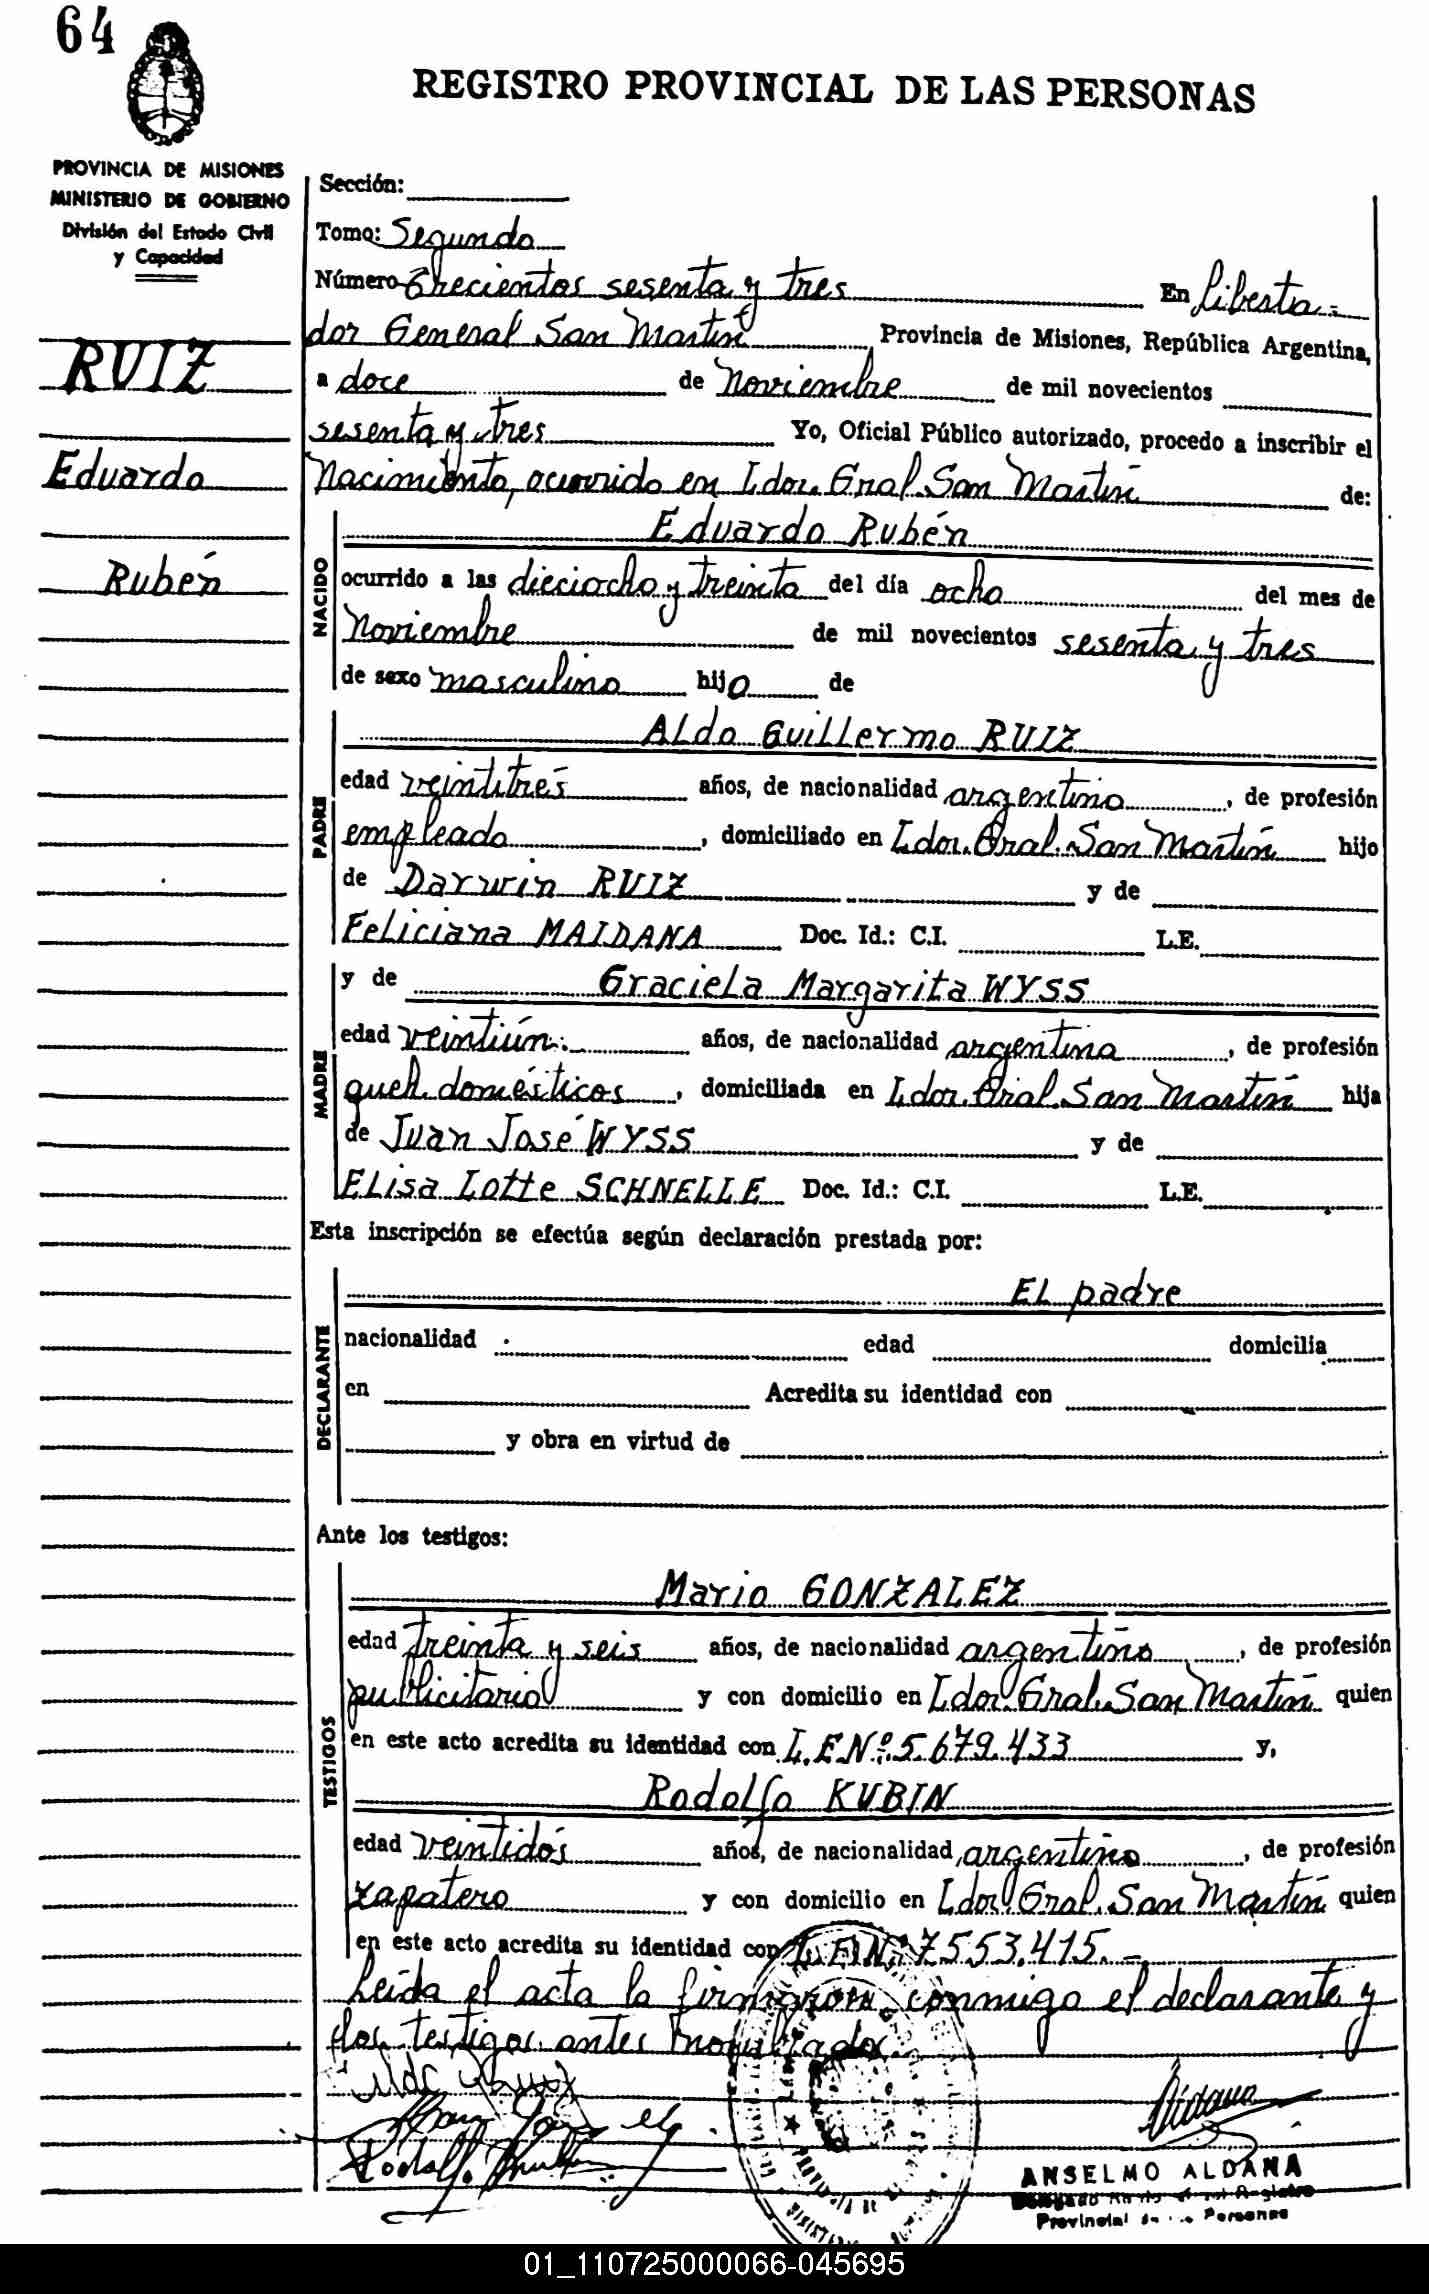 64
REGISTRO PROVINCIAL DE LAS PERSONAS
PROVINCIA DE MISIONES
MINISTERIO DE GOBIERNO
División del Estado Civil
y Capacidad
RUIZ
Eduardo
Rubén
Sección:
Tomo: Segundo
Número Trecientos sesenta y tres En Liberta-
dor General San Martín Provincia de Misiones, República Argentina,
a doce de Noviembre de mil novecientos
sesenta y tres Yo, Oficial Público autorizado, procedo a inscribir el
Nacimiento, ocurrido en Ldor. Gral. San Martín de:
NACIDO
Eduardo Rubén
ocurrido a las dieciocho y treinta del día ocho del mes de
Noviembre de mil novecientos sesenta y tres
de sexo masculino hijo de
PADRE
Aldo Guillermo RUIZ
edad veintitrés años, de nacionalidad argentino, de profesión
empleado, domiciliado en Ldor. Gral. San Martín hijo
de Darwin RUIZ y de
Feliciana MAIDANA Doc. Id.: C.I. L.E.
MADRE
y de Graciela Margarita WYSS
edad veintiún. años, de nacionalidad argentina, de profesión
queh. domésticos, domiciliada en Ldor. Gral. San Martín hija
de Juan José WYSS y de
Elisa Lotte SCHNELLE Doc. Id.: C.I. L.E.
Esta inscripción se efectúa según declaración prestada por:
DECLARANTE
El padre
nacionalidad edad domicilia
en Acredita su identidad con
y obra en virtud de
Ante los testigos:
TESTIGOS
Mario GONZALEZ
edad treinta y seis años, de nacionalidad argentino, de profesión
publicitario y con domicilio en Ldor. Gral. San Martín quien
en este acto acredita su identidad con L.E.Nº:5.679.433 y,
Rodolfo KUBIN
edad veintidós años, de nacionalidad argentino, de profesión
zapatero y con domicilio en Ldor. Gral. San Martín quien
en este acto acredita su identidad con L.E.Nº:7553.415.-
Leída el acta la firmaron conmigo el declarante y
los testigos antes
Rodolfo
ANSELMO ALDANA
Provincial de las Personas
01_110725000066-045695